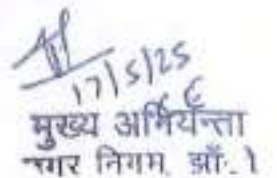 17/5/25
मुख्य अभियन्ता
नगर निगम, झाँ.